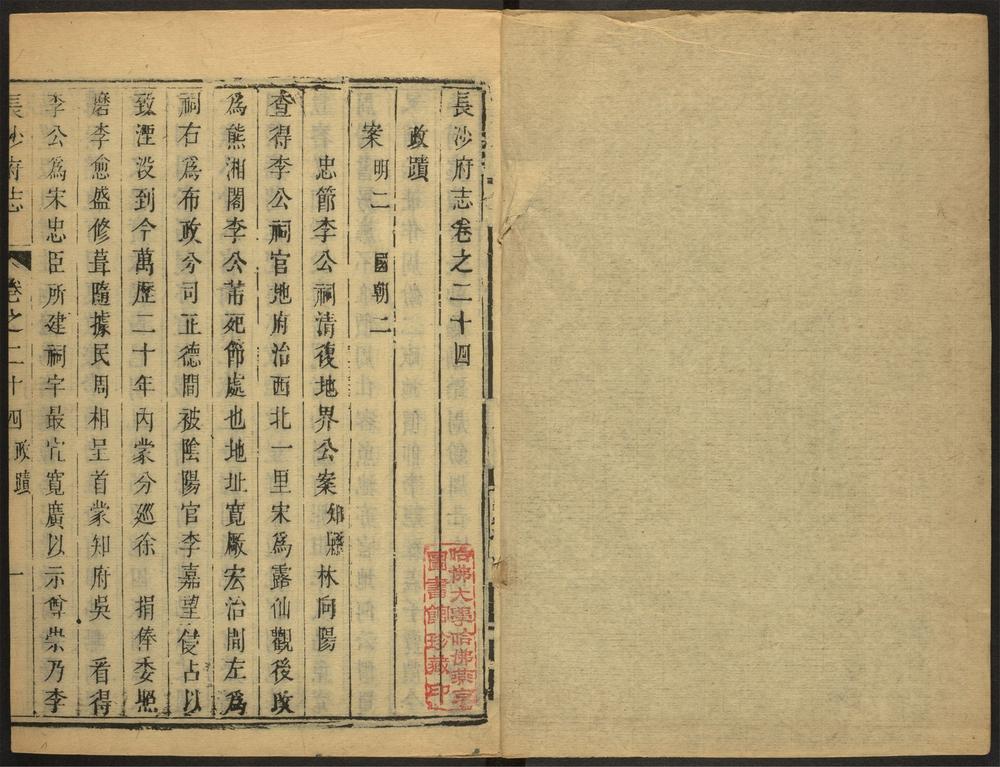 長沙府志卷之二十四
政蹟
案 明二 國朝二
忠節李公祠清復地界公案 知縣 林向陽
查得李公祠官地府治西北一里宋爲露仙觀後改
爲熊湘閣李公芾死節處也地址寬厰宏治間左爲
祠右爲布政分司正德間被陰陽官李嘉望侵占以
致湮沒到今萬歷二十年內蒙分廵徐 捐俸委照
磨李愈盛修葺隨據民周相呈首蒙知府吳 看得
李公爲宋忠臣所建祠宇最宜寬廣以示尊崇乃李
長沙府志 卷之二十四 政蹟 一
哈佛大學哈佛燕京
圖書館珍藏印